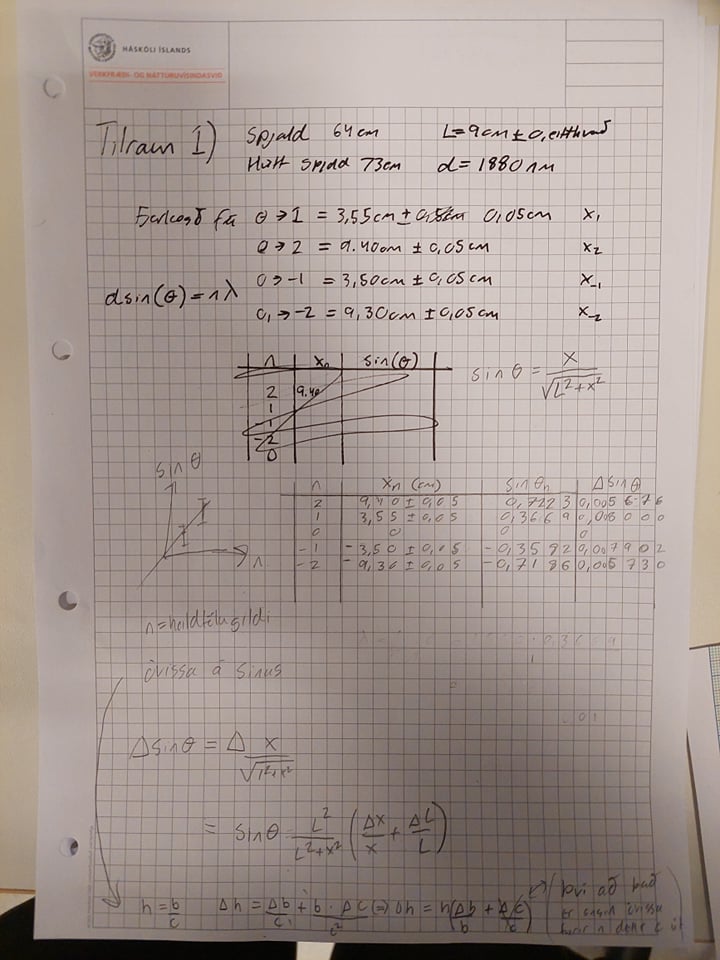 HÁSKÓLI ÍSLANDS
VERKFRÆÐI- OG NÁTTÚRUVÍSINDASVIÐ
Tilraun 1)
Spjald 64cm L=9cm ± 0,eitthvað
Hvítt spjald 73cm d=1880nm
Fjarlægð frá 0→1 = 3,55cm ± 0,05cm x₁
0→2 = 9.40cm ± 0,05cm x₂
0→-1 = 3,50cm ± 0,05cm x₋₁
dsin(θ)=nλ
0,→-2 = 9,30cm ± 0,05cm x₋₂
n xₙ sin(θ)
2 9.40
1
-1
-2
0
sinθ = x/√(L²+x²)
sinθ
n
n xₙ (cm) sinθₙ Δsinθ
2 9,40 ± 0,05 0,7223 0,005676
1 3,55 ± 0,05 0,3669 0,008000
0 0 0 0
-1 -3,50 ± 0,05 -0,3592 0,007902
-2 -9,30 ± 0,05 -0,7186 0,005730
n=heiltölugildi
óvissa á sinus
Δsinθ = Δ x/√(L²+x²)
= sinθ L²/(L²+x²) (Δx/x + ΔL/L)
h = b/c Δh = Δb/c + b·Δc/c² (=) Δh = h(Δb/b + Δc/c)
því að það
er engin óvissa